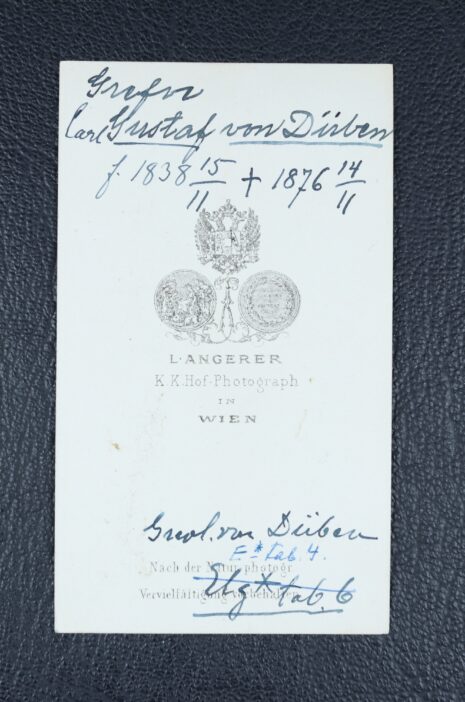 Grefve
Carl Gustaf von Düben
f. 1838 15/11 + 1876 14/11
L. ANGERER
K. K. Hof-Photograph
IN
WIEN
von Düben
E* tab. 4.
Nach der Natur photogr.
Vervielfältigung vorbehalten
tab. 6